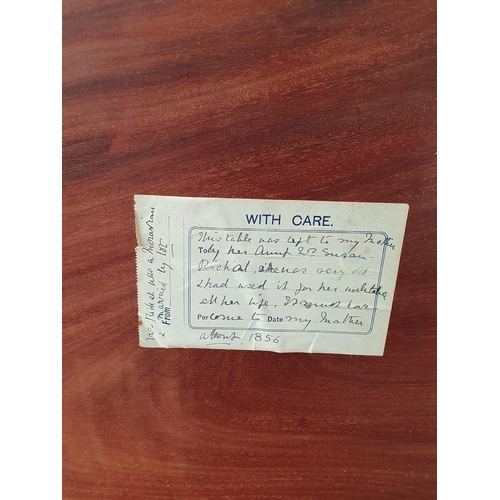 WITH CARE.
This table was left to my Mother
To by her Aunt Susan
she was very old
& had used it for her worktable
all her life, It must have
Per come to Date my Mother
about 1856
was a Moravian
& married by lot
From